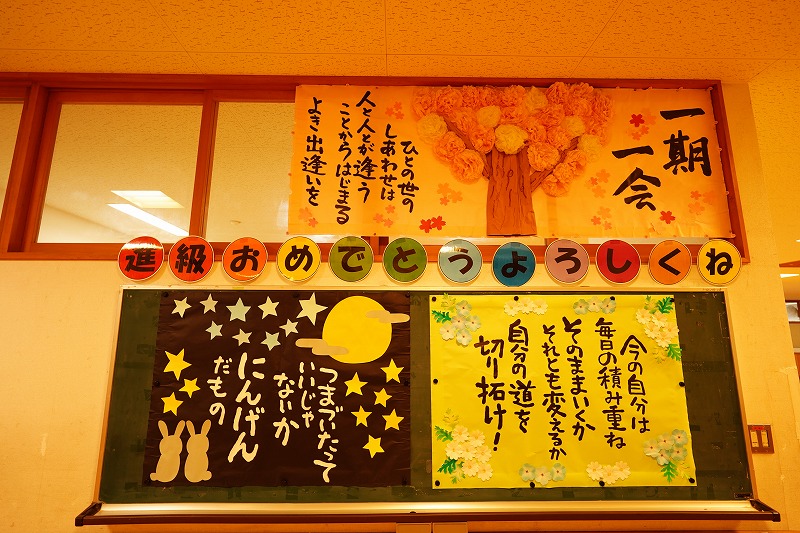 一期
一会
ひとの世の
しあわせは
人と人とが逢う
ことからはじまる
よき出逢いを
進級おめでとうよろしくね
つまづいたって
いいじゃ
ないか
にんげん
だもの
今の自分は
毎日の積み重ね
そのままいくか
それとも変えるか
自分の道を
切り拓け!